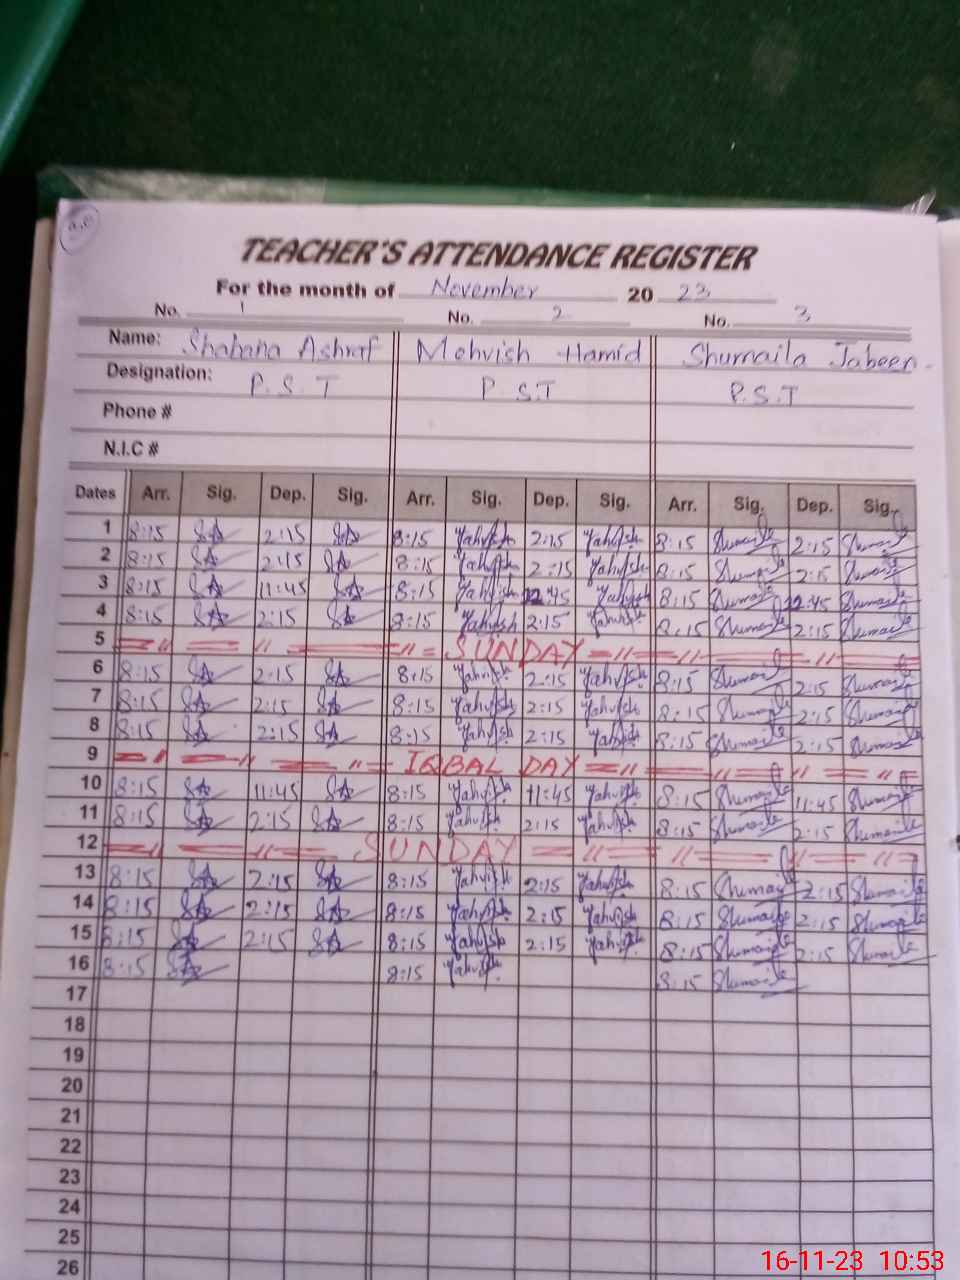 a.e
TEACHER'S ATTENDANCE REGISTER
For the month of November 20 23
No. 1 No. 2 No. 3
Name: Shabana Ashraf Mehvish Hamid Shumaila Jabeen.
Designation: P.S.T P.S.T P.S.T
Phone #
N.I.C #
Dates Arr. Sig. Dep. Sig. Arr. Sig. Dep. Sig. Arr. Sig. Dep. Sig.
1 8:15 SA 2:15 SA 8:15 2:15 8:15 Shumaila 2:15 Shumaila
2 8:15 SA 2:15 SA 8:15 2:15 8:15 Shumaila 2:15 Shumaila
3 8:15 SA 11:45 SA 8:15 8:15 Shumaila Shumaila
4 8:15 SA 2:15 SA 8:15 2:15 8:15 Shumaila 2:15 Shumaila
5 = " = " = " = SUNDAY = " = " = " =
6 8:15 SA 2:15 SA 8:15 2:15 8:15 Shumaila 2:15 Shumaila
7 8:15 SA 2:15 SA 8:15 2:15 8:15 Shumaila 2:15 Shumaila
8 8:15 SA 2:15 SA 8:15 2:15 8:15 Shumaila 2:15 Shumaila
9 = " = " = IQBAL DAY = " = " = " =
10 8:15 SA 11:45 SA 8:15 11:45 8:15 Shumaila 11:45 Shumaila
11 8:15 SA 2:15 SA 8:15 2:15 8:15 Shumaila 2:15 Shumaila
12 = " = " = SUNDAY = " = " = " =
13 8:15 SA 2:15 SA 8:15 2:15 8:15 Shumaila 2:15 Shumaila
14 8:15 SA 2:15 SA 8:15 2:15 8:15 Shumaila 2:15 Shumaila
15 8:15 SA 2:15 SA 8:15 2:15 8:15 Shumaila 2:15 Shumaila
16 8:15 SA 8:15 8:15 Shumaila
17
18
19
20
21
22
23
24
25
26
16-11-23 10:53